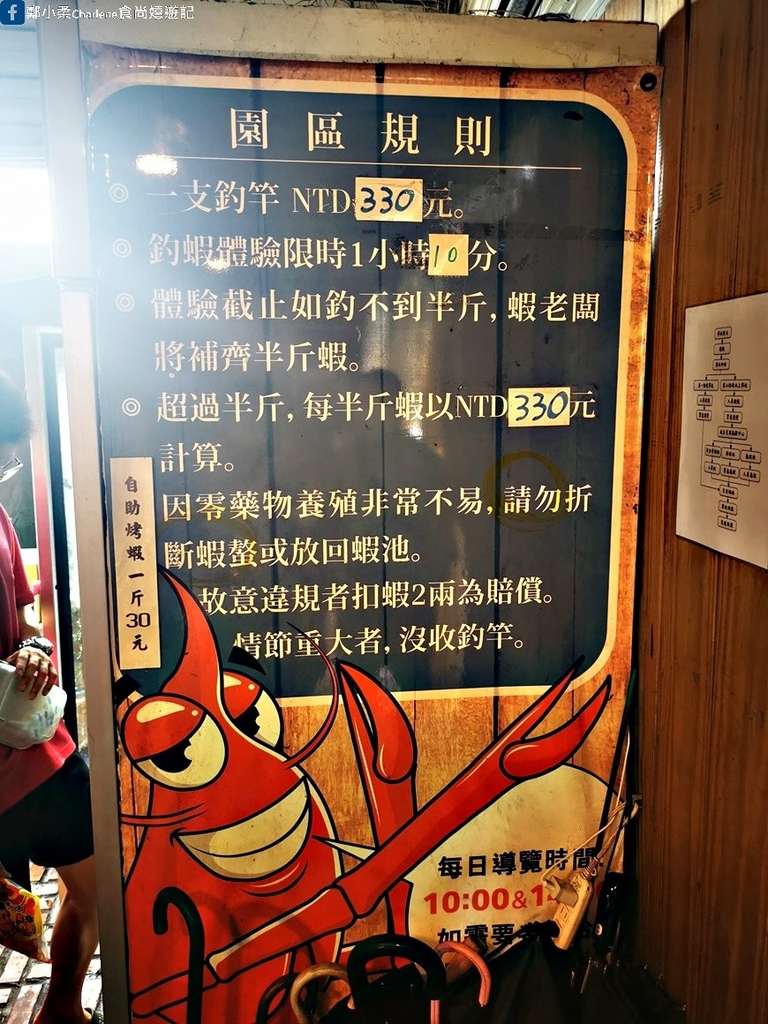 鄭小柔Charlene食尚嬉遊記
園區規則
◎ 一支釣竿 NTD330元。
◎ 釣蝦體驗限時1小時10分。
◎ 體驗截止如釣不到半斤,蝦老闆
將補齊半斤蝦。
◎ 超過半斤,每半斤蝦以NTD330元
計算。
因零藥物養殖非常不易,請勿折
斷蝦螯或放回蝦池。
故意違規者扣蝦2兩為賠償。
情節重大者,沒收釣竿。
自助烤蝦一斤30元
每日導覽時間:
10:00&1
如需要